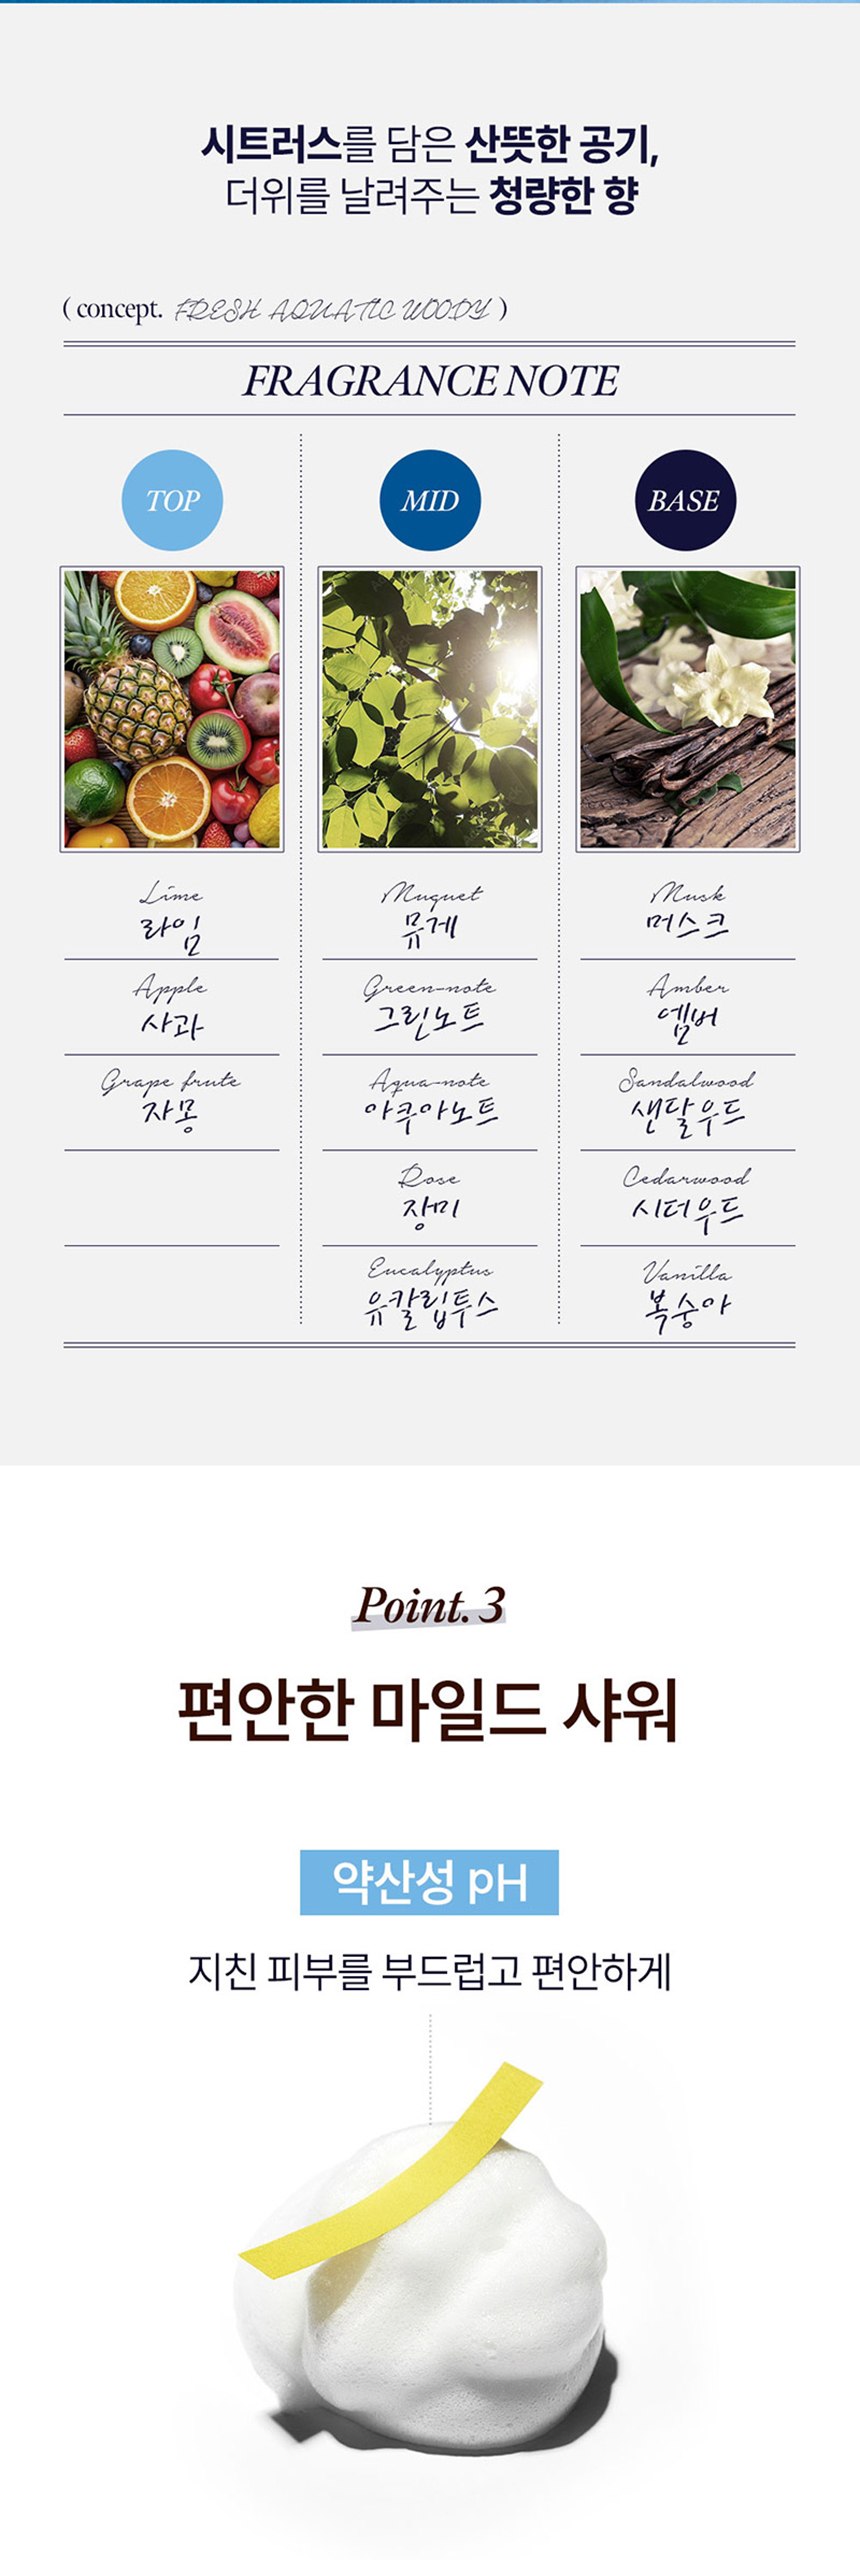 시트러스를 담은 산뜻한 공기,
더위를 날려주는 청량한 향
( concept. FRESH AQUATIC WOODY )
FRAGRANCE NOTE
TOP
MID
BASE
Lime
라임
Muguet
뮤게
Musk
머스크
Apple
사과
Green-note
그린노트
Amber
엠버
Grape frute
자몽
Aqua-note
아쿠아노트
Sandalwood
샌달우드
Rose
장미
Cedarwood
시더우드
Eucalyptus
유칼립투스
Vanilla
복숭아
Point. 3
편안한 마일드 샤워
약산성 pH
지친 피부를 부드럽고 편안하게